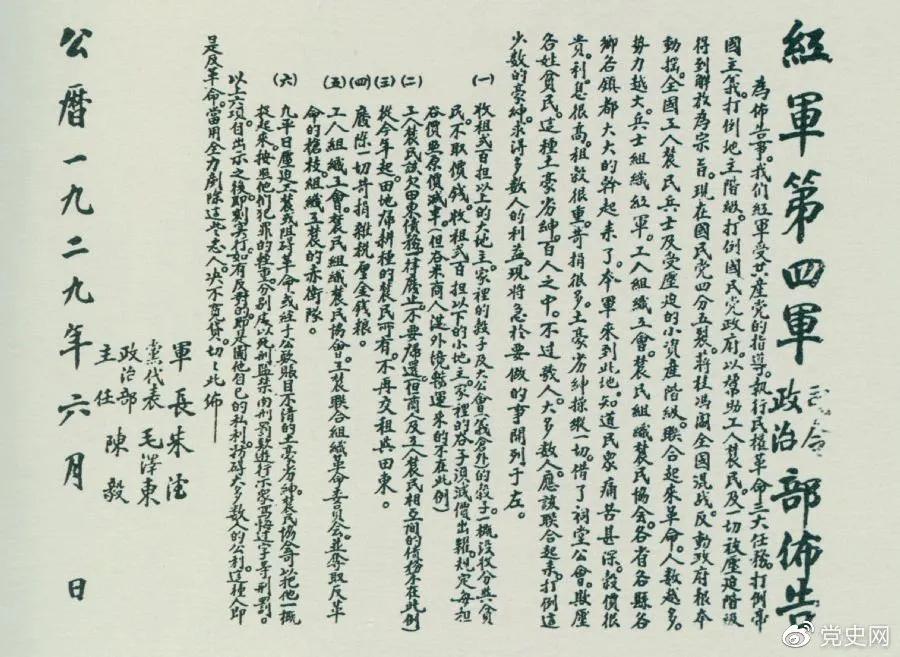 紅軍第四軍司令政治部佈告
為佈告事。我們紅軍受共產党的指導。執行民權革命三大任務。打倒帝
國主義。打倒地主階級。打倒國民党政府。以幫助工人農民。及一切被壓迫階級
得到解放為宗旨。現在國民党四分五裂。蔣桂馮閻全國混战。反動政府根本
動搖。全國工人農民兵士及受壓迫的小資產階級。聯合起來革命。人數越多。
势力越大。兵士組織紅軍。工人組織工會。農民組織農民協会。各省各縣各
鄉各鎮都大大的幹起來了。本軍來到此地。知道民眾痛苦甚深。穀價很
貴。利息很高。租穀很重。苛捐很多。土豪劣紳操縱一切。借了祠堂公會。欺壓
各姓貧民。這種土豪劣紳。百人之中。不过數人。大多數人。應該联合起來。打倒這
少数的豪紳。求得多數人的利益。現將急於要做的事開列于左。
(一) 收租弍百担以上的大地主。家裡的穀子及大公會(義倉外)的穀子。一概沒收分與貧
民。不取價钱。收租弍百担以下的小地主。家裡的谷子須減價出糶。規定每担
谷價照原價減半。(但谷米商人從外境輸運來的不在此例)
(二) 工人農民該欠田東債務。一律廢止。不要歸還。(但商人及工人農民相互間的債務不在此例)
(三) 從今年起。田地歸耕種的農民所有。不再交租與田東。
(四) 廢除一切苛捐雜税厘金錢粮。
(五) 工人組織工會。農民組織農民協會。工農联合組織革命委員会。並奪取反革
命的槍枝。組織工農的赤衛隊。
(六) 凡平日壓迫工農或阻碍革命。或經手公款賬目不清的土豪劣紳。農民協會可以把他一概
捉起來。按照他們犯罪的輕重。分別處以死刑監禁肉刑罰款遊行示眾寫悔过字等刑罰。
以上六項。自出示之後即刻实行。如有反對的。即是圖他自己的私利。妨碍大多数人的公利。這種人即
是反革命。當用全力剷除這些惡人。決不寬貸。切切此佈
軍長朱德
黨代表毛澤東
政治部主任陳毅
公曆一九二九年六月 日
党史网